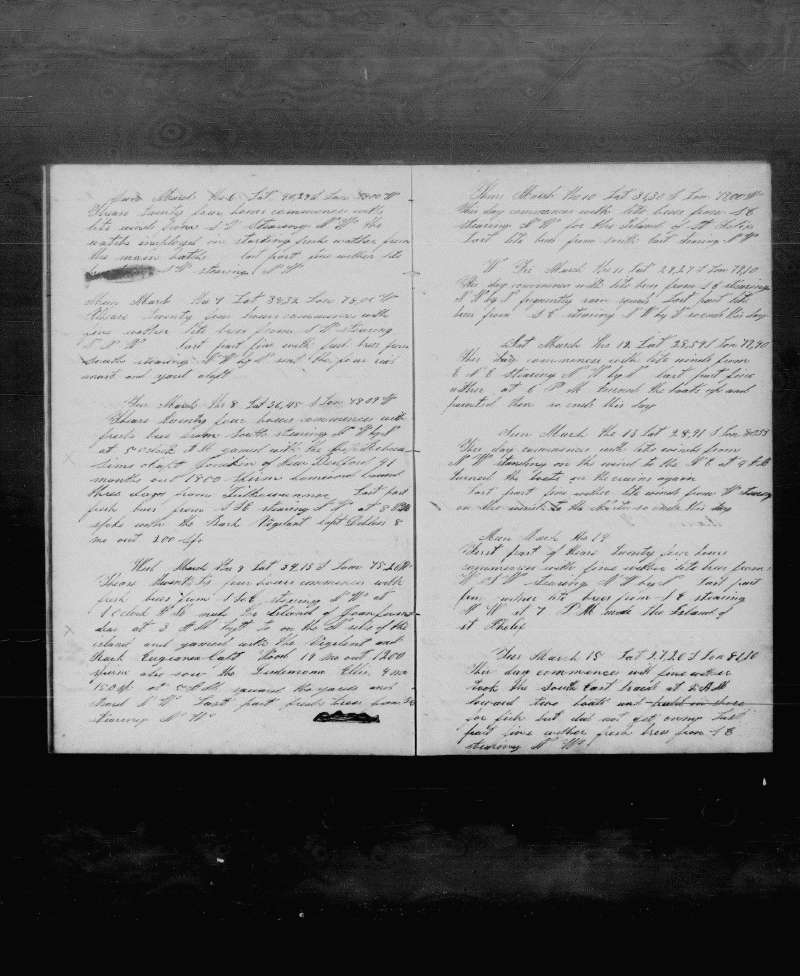 Sun March the 6 Lat 40,29 S Lon 78,00 W
Thease twenty four hours commences with
lite winds from S W Stearing N W the
watch imployed in starting fresh wather from
the main hatch last part fine wether lite
S W stearing N W
Mon March the 7 Lat 38,52 Lon 78,00 W
thease twenty four hours commences with
fine wether lite brees from S W stearing
N N W last part fine with fresh brees from
South stearing N W by N sent the four
mast and yard aloft
Tues March the 8 Lat 36,45 S Lon 78,09 W
Thease twenty four hours commences with
fresh brees from South stearing N W by N
at 5 oclock A M gamed with the
capt of New Bedford 41
months out 1850 sperm homeward bound
three days from Last part
fresh brees from S S E stearing N W at 8
spoke with the Bark Vigilant capt 8
mo out 200 sp
Wed March the 9 Lat 34,15 S Lon 78,20 W
Thease twenty four hours commences with
fresh brees from S S E stearing N W at
1 oclock P M made the Island of Juan
at 3 P M luft to on the side of the
island and gamed with the Vigilant and
Bark Eugenia Capt Wood 19 mo out 1200
sperm also saw the 4 mo
150 sp at P M squared the yards and
stard N W Last part fresh brees from S E
stearing N W
Thurs March the 10 Lat 31,30 S Lon 79,00 W
This day commences with lite brees from S E
stearing N W for the Island of St Felix
Last lite brees from south east stearing N W
Fri March the 11 Lat 29,27 S Lon 79,10
This day commences with lite brees from S E stearing
N W by N friquently rain squals Last part lite
brees from S E stearing N W by N so ends this day
Sat March the 12 Lat 28,59 S Lon 79,40
This day commences with lite winds from
E N E stearing N W by N last part fine
wether at 6 P M turned the boats up and
painted them so ends this day
Sun March the 13 Lat 28,41 S Lon 80,38
This day commences with lite winds from
N W standing on the wind to the N E at 9 A M
turned the boats on the crains again
Last part fine wether lite winds from W stearing
on the wind to the so ends this day
Mon March the 14
First part of thease twenty four hours
commences with fine wether lite brees from
W S W stearing N W by N last part
fine wether lite brees from S E stearing
N W at 7 P M made the Island of
st Phelix
Tues March 15 Lat 27,20 S Lon 81,10
This day commences with fine wether
took the South East trades at 5 A M
lowerd two boats and puld in shore
for fish but did not get eny Last
part fine wether fresh brees from S E
stearing N W